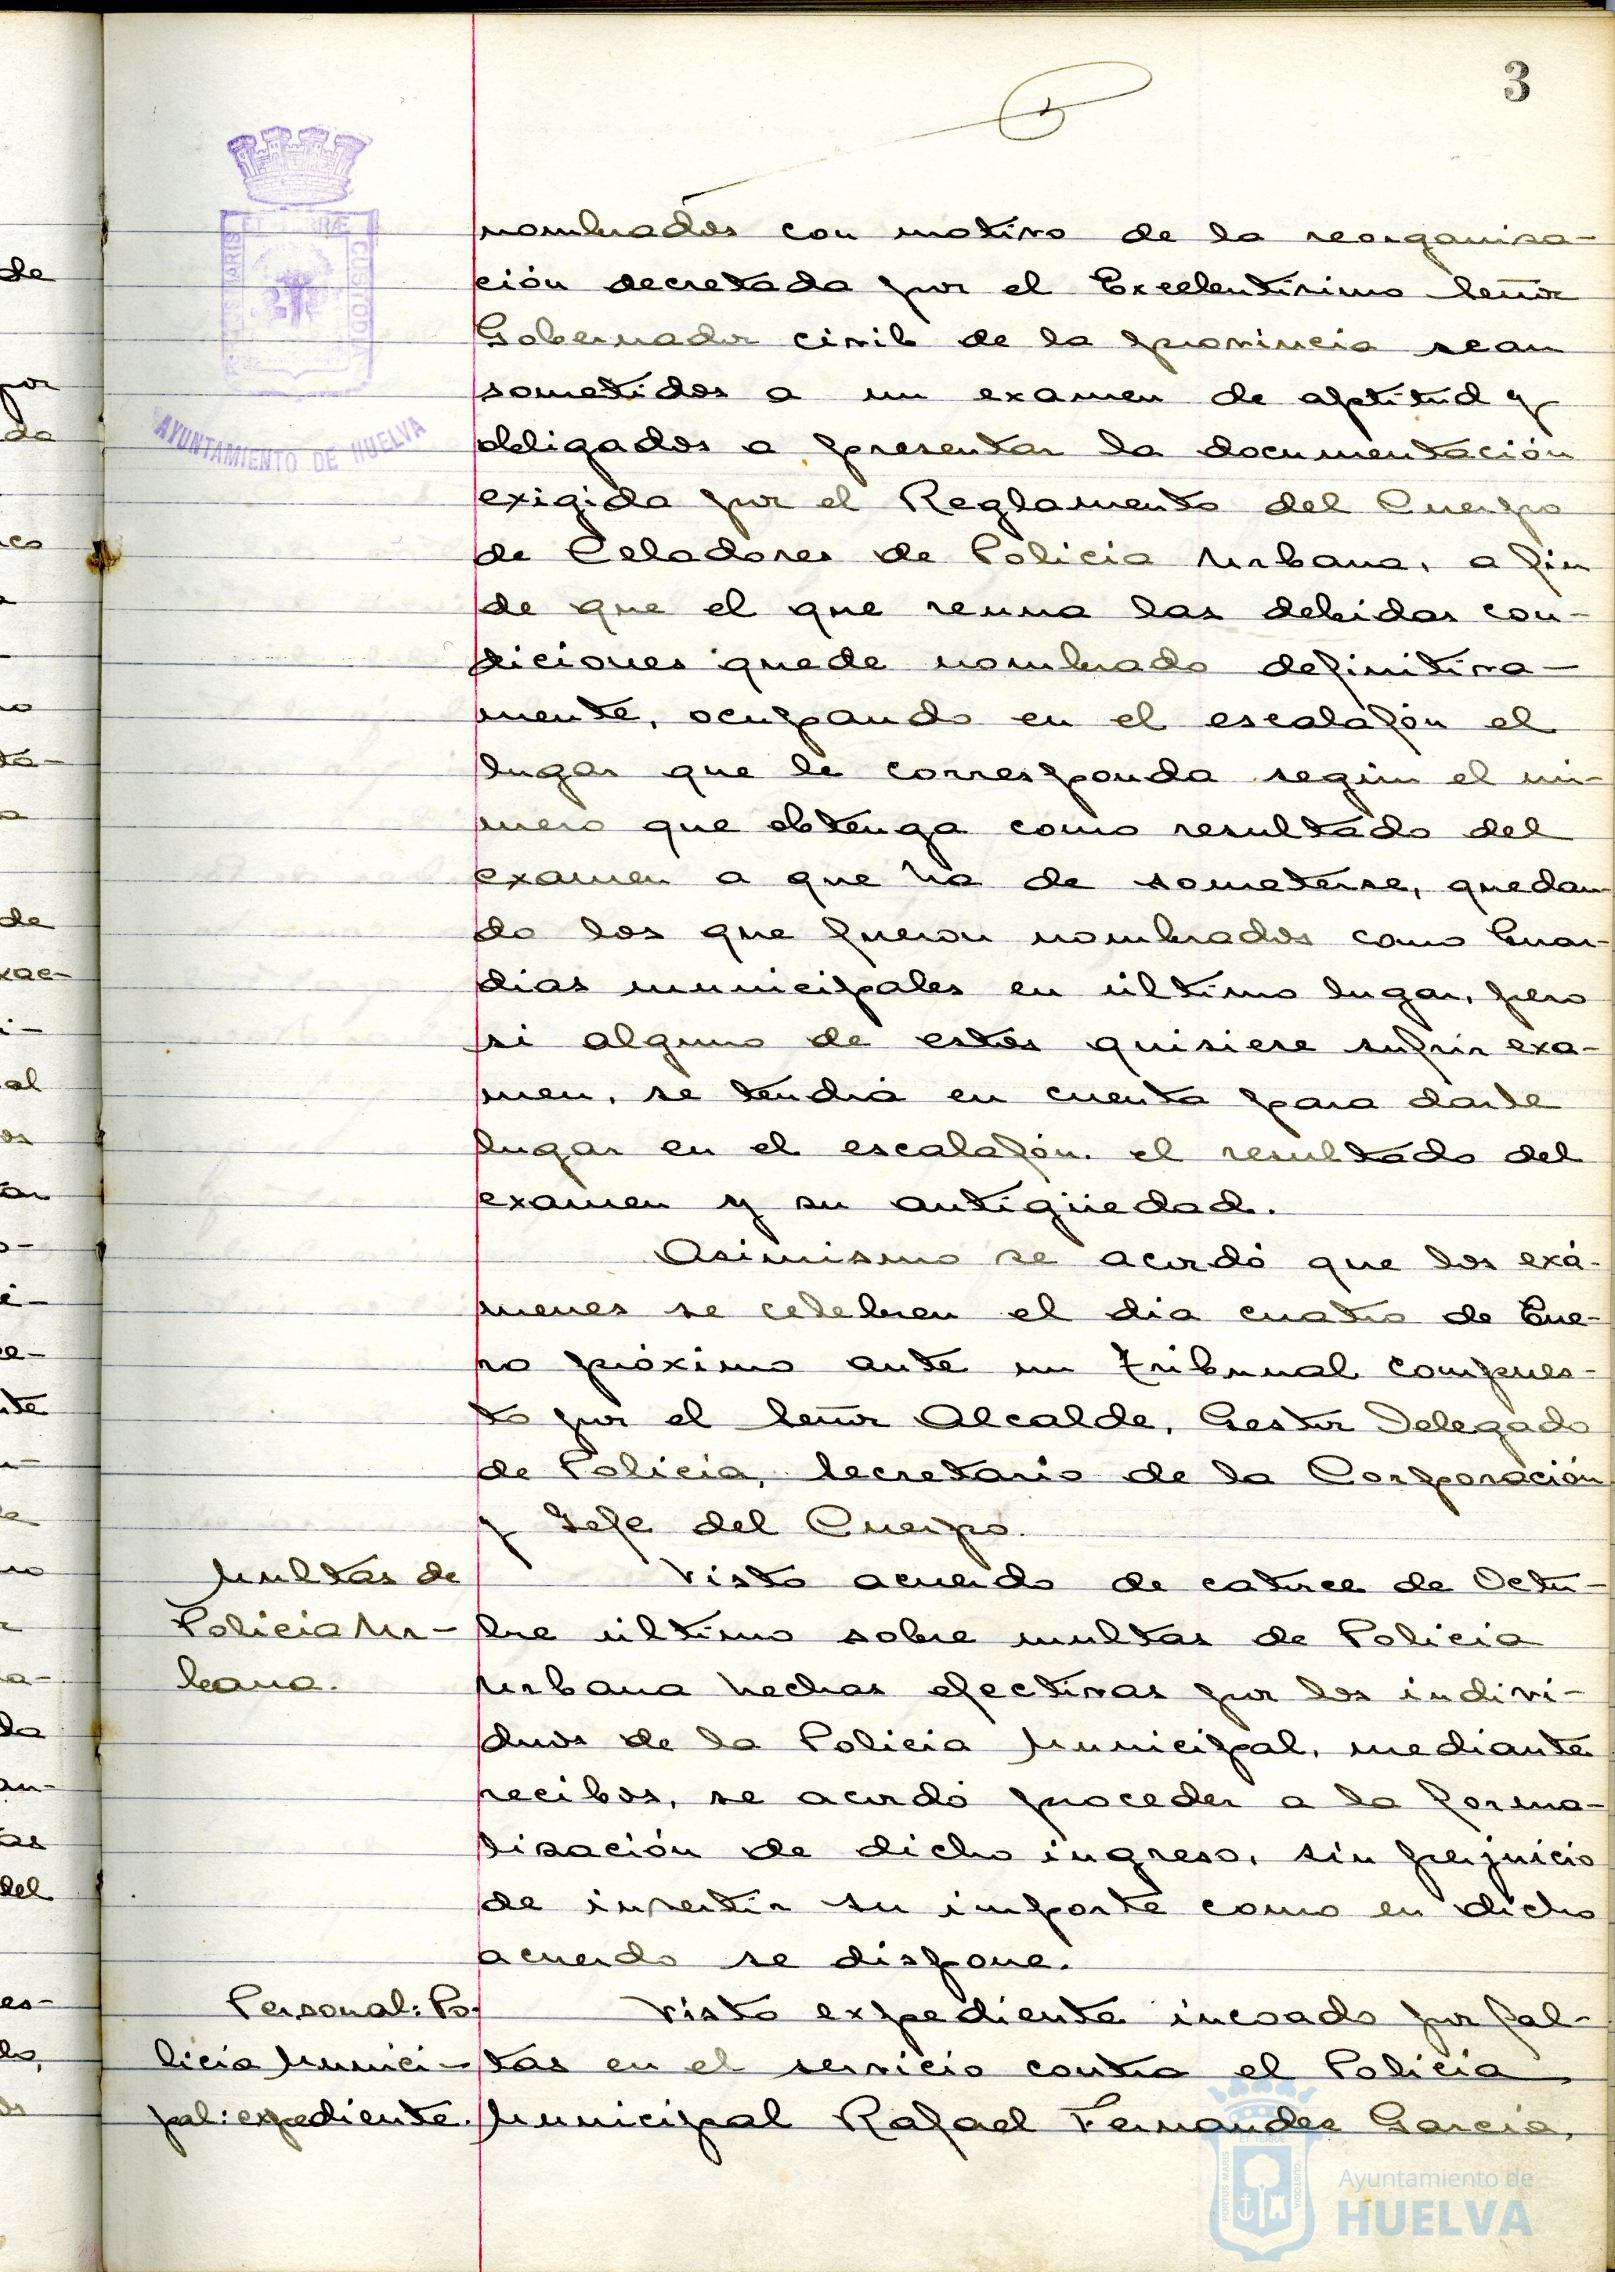 3
nombrados con motivo de la reorganiza-
ción decretada por el Excelentísimo Señor
Gobernador civil de la provincia sean
sometidos a un examen de aptitud y
obligados a presentar la documentación
exigida por el Reglamento del Cuerpo
de Celadores de Policia Urbana, a fin
de que el que reuna las debidas con-
diciones quede nombrado definitiva-
mente, ocupando en el escalafón el
lugar que le corresponda según el nú-
mero que obtenga como resultado del
examen a que ha de someterse, quedan-
do los que fueron nombrados como Guar-
dias municipales en último lugar, pero
si alguno de estos quisiere sufrir exa-
men, se tendrá en cuenta para darle
lugar en el escalafón el resultado del
examen y su antigüedad.
Asimismo se acordó que los exá-
menes se celebren el dia cuatro de Ene-
ro próximo ante un tribunal compues-
to por el Señor Alcalde, Gestor Delegado
de Policia, Secretario de la Corporación
y Jefe del Cuerpo.
Multas de
Policia Ur-
bana.
Visto acuerdo de catorce de Octu-
bre último sobre multas de Policia
Urbana hechas efectivas por los indivi-
duos de la Policia Municipal, mediante
recibos, se acordó proceder a la forma-
lización de dicho ingreso, sin perjuicio
de invertir su importe como en dicho
acuerdo se dispone.
Personal: Po-
licia Munici-
pal: expediente.
Visto expediente incoado por fal-
tas en el servicio contra el Policia
Municipal Rafael Fernandez Garcia,
AYUNTAMIENTO DE HUELVA
PORTUS MARIS ET TERRÆ CUSTODIA
Ayuntamiento de
HUELVA